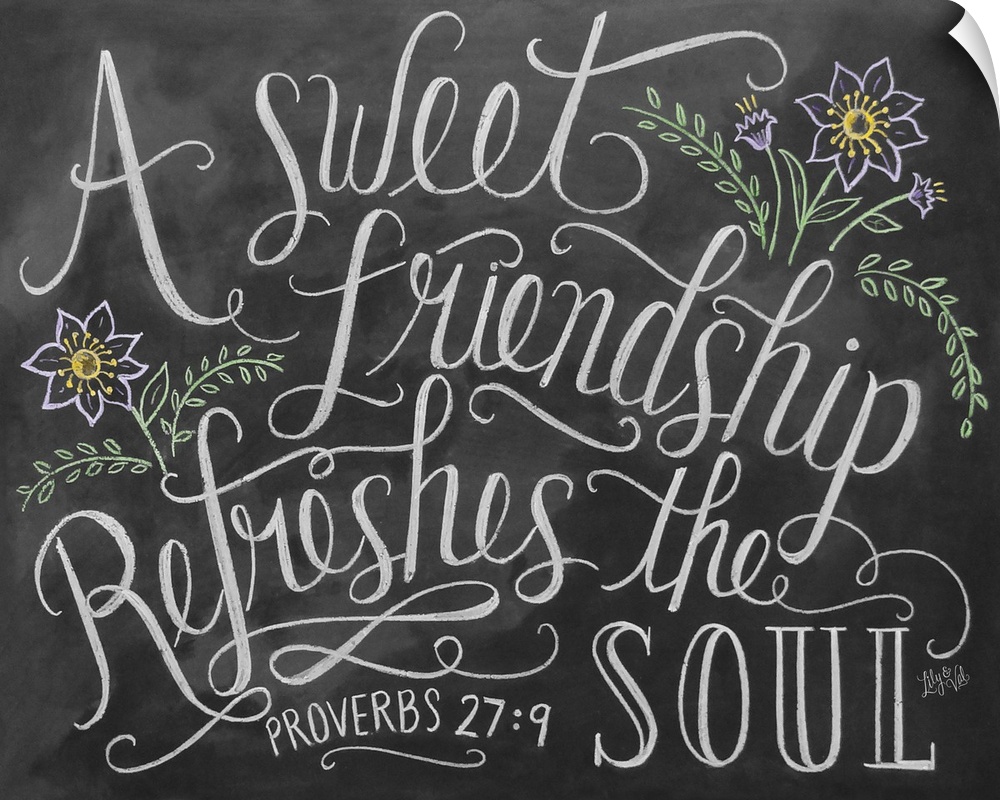 A sweet
friendship
Refreshes the
SOUL
PROVERBS 27:9
Lily & Val